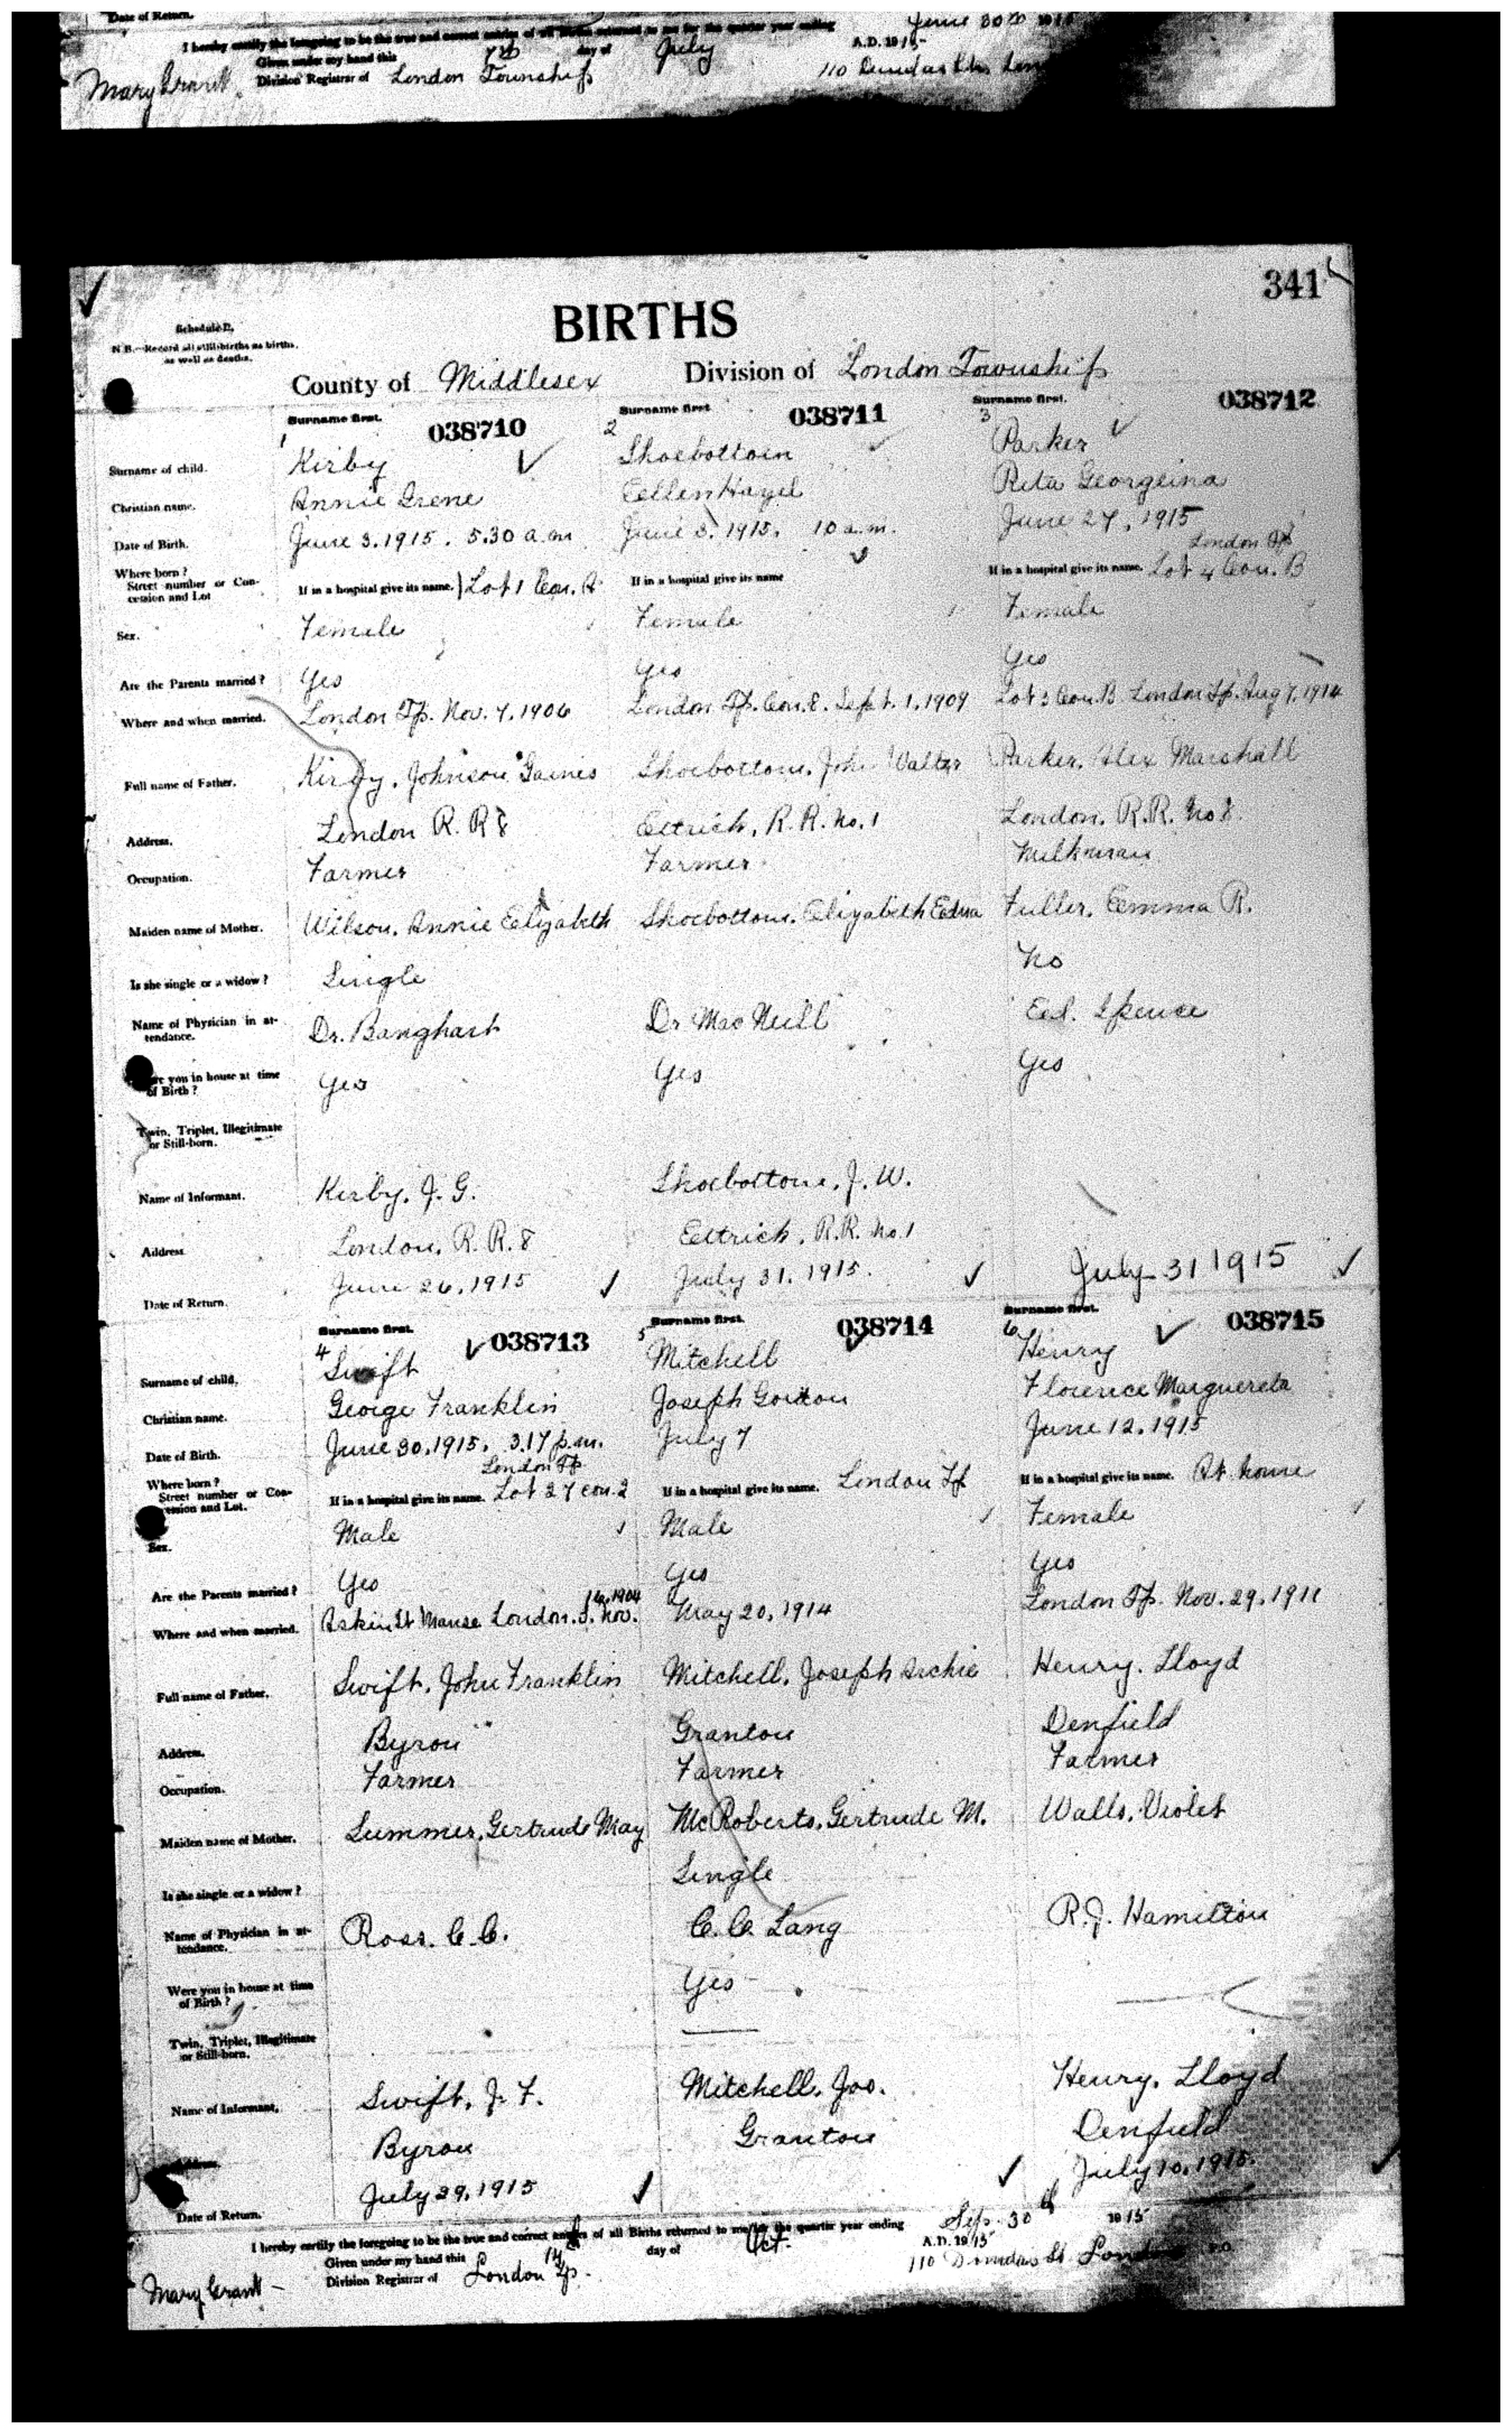 Date of Return.
I hereby certify the foregoing to be the true and correct entries of all Births returned to me for the quarter year ending June 30th 1915
Given under my hand this 7th day of July A.D. 1915
Mary Grant. Division Registrar of London Township 110 Dundas
341
Schedule B.
N.B.—Record all stillbirths as births, as well as deaths.
BIRTHS
County of Middlesex Division of London Township
Surname first. 038710 Surname first. 038711 Surname first. 038712
1 2 3
Surname of child. Kirby Shoebottom Parker
Christian name. Annie Irene Ellen Hazel Rita Georgeina
Date of Birth. June 3. 1915. 5.30 a.m June 3. 1915. 10 a.m. June 27, 1915
London Tp
Where born? Street number or Concession and Lot If in a hospital give its name. Lot 1 Con. A If in a hospital give its name If in a hospital give its name. Lot 4 Con. B
Sex. Female Female Female
Are the Parents married? Yes Yes Yes
Where and when married. London Tp. Nov. 7, 1906 London Tp. Con. 8. Sept. 1, 1909 Lot 3 Con. B London Tp. Aug 7, 1914
Full name of Father. Kirby, Johnson Gaines Shoebottom, John Walter Parker, Alex Marshall
Address. London R. R 8 Ettrick, R. R. No. 1 London, R.R. No 8.
Occupation. Farmer Farmer Milkman
Maiden name of Mother. Wilson, Annie Elizabeth Shoebottom, Elizabeth Edna Fuller, Emma R.
Is she single or a widow? Single No
Name of Physician in attendance. Dr. Banghart Dr MacNeill Ed. Spence
Were you in house at time of Birth? Yes Yes Yes
Twin, Triplet, Illegitimate or Still-born.
Name of Informant. Kirby, J. G. Shoebottom, J. W.
Address London, R. R. 8 Ettrick, R.R. No. 1
Date of Return. June 26, 1915 July 31, 1915. July 31 1915
Surname first. 038713 Surname first. 038714 Surname first. 038715
4 5 6
Surname of child. Swift Mitchell Henry
Christian name. George Franklin Joseph Gordon Florence Marguereta
Date of Birth. June 30, 1915, 3.17 p.m. July 7 June 12, 1915
London Tp
Where born? Street number or Concession and Lot. If in a hospital give its name. Lot 27 con. 2 If in a hospital give its name. London Tp If in a hospital give its name. At home
Sex. Male Male Female
Are the Parents married? Yes Yes Yes
Where and when married. Askin St Manse London. S. Nov. 16, 1904 May 20, 1914 London Tp. Nov. 29, 1911
Full name of Father. Swift, John Franklin Mitchell, Joseph Archie Henry, Lloyd
Address. Byron Granton Denfield
Occupation. Farmer Farmer Farmer
Maiden name of Mother. Summer, Gertrude May McRoberts, Gertrude M. Walls, Violet
Is she single or a widow? Single
Name of Physician in attendance. Ross. C. C. C. C. Lang R. J. Hamilton
Were you in house at time of Birth? Yes
Twin, Triplet, Illegitimate or Still-born.
Name of Informant. Swift, J. F. Mitchell, Jos. Henry, Lloyd
Address. Byron Granton Denfield
Date of Return. July 29, 1915 July 10, 1915.
I hereby certify the foregoing to be the true and correct entries of all Births returned to me for the quarter year ending Sep. 30th 1915
Given under my hand this 14 day of Oct. A.D. 1915
Mary Grant Division Registrar of London Tp. 110 Dundas St London P.O.